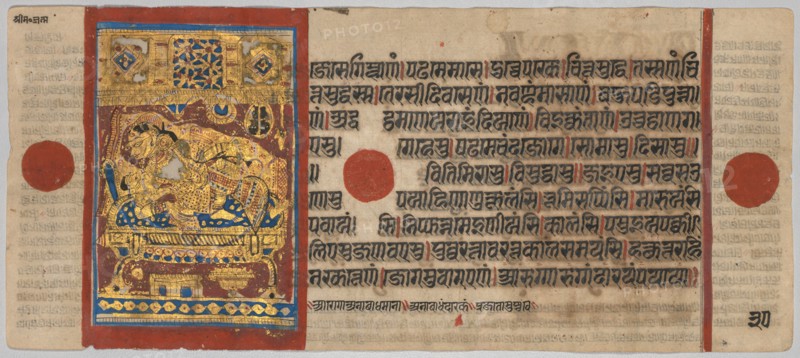 जे से गिम्हाणं । पढमे मासे । दोच्चे पक्खे । चित्तसुद्धे । तस्स णं चि
त्तसुद्धस्स । तेरसीदिवसेणं । नवण्हं मासाणं । बहुपडिपुन्ना
णं । अद्ध ट्ठमाणं राइंदियाणं । विइक्कंताणं । उच्चट्ठाणग
एसु । गहेसु पढमे चंदजोगे । सोमासु दिसासु ॥
॥ वितिमिरासु । विसुद्धासु । जइएसु सव्वसउ
णेसु पयाहिणाणुकूलंसि । भूमिसप्पिंसि । मारुयंसि
पवायंसि । निप्फन्नमेइणीयंसि । कालंसि । पमुइयपक्की
लिएसु जणवएसु । पुव्वरत्तावरत्तकालसमयंसि । हत्थुत्तराहिं
नक्खत्तेणं । जोगमुवागएणं । आरोग्गारोग्गं दारयं पयाया ॥
३०